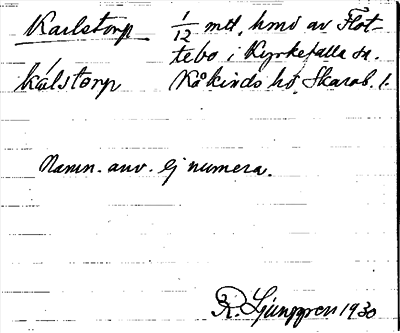 Karlstorp 1/12 mtl, hmd av Flot-
tebo i Kyrkefalla sn.
kálstorp Kåkinds hd, Skarab. l.
Namn. anv. ej numera.
R. Ljunggren 1930